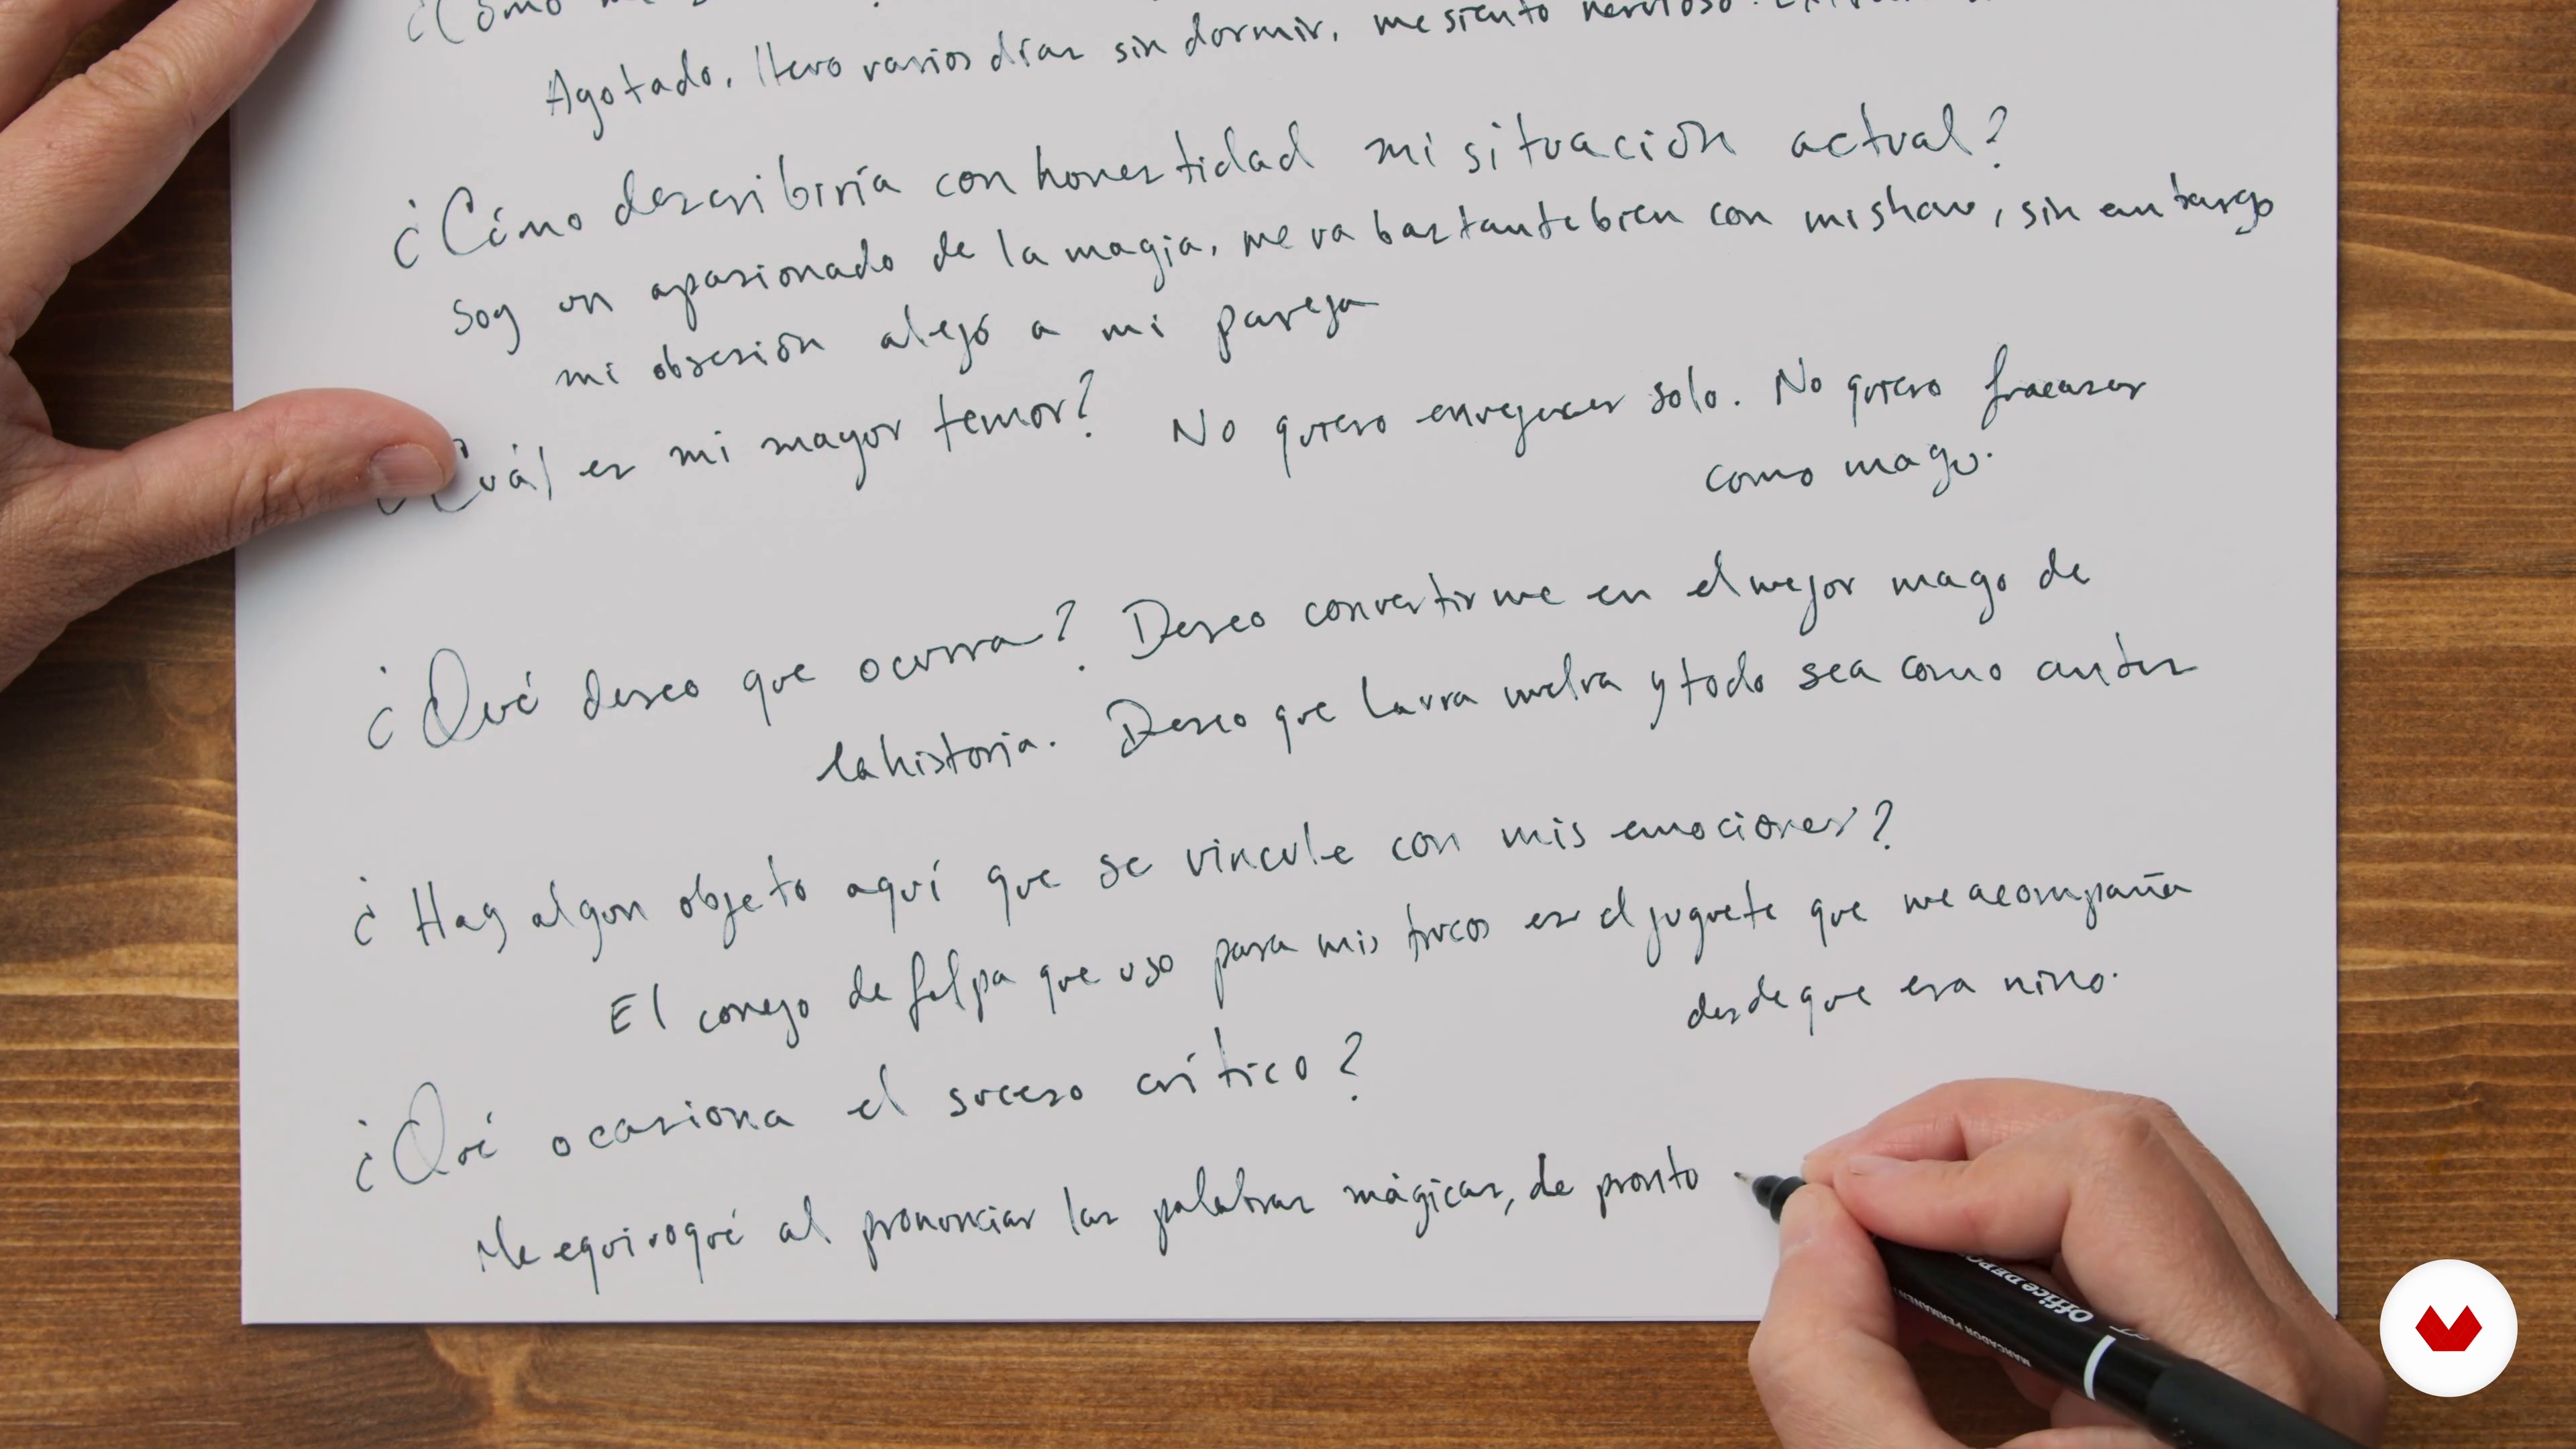 ¿Cómo
Agotado, llevo varios días sin dormir, me siento nervioso.
¿Cómo describiría con honestidad mi situación actual?
Soy un apasionado de la magia, me va bastante bien con mi show, sin embargo
mi obsesión alejó a mi pareja
¿Cuál es mi mayor temor? No quiero envejecer solo. No quiero fracasar
como mago.
¿Qué deseo que ocurra? Deseo convertirme en el mejor mago de
la historia. Deseo que Laura vuelva y todo sea como antes
¿Hay algun objeto aquí que se vincule con mis emociones?
El conejo de felpa que uso para mis trucos es el juguete que me acompaña
desde que era niño.
¿Qué ocasiona el suceso crítico?
Me equivoqué al pronunciar las palabras mágicas, de pronto
Office DEPO
MARCADOR PERMANENT